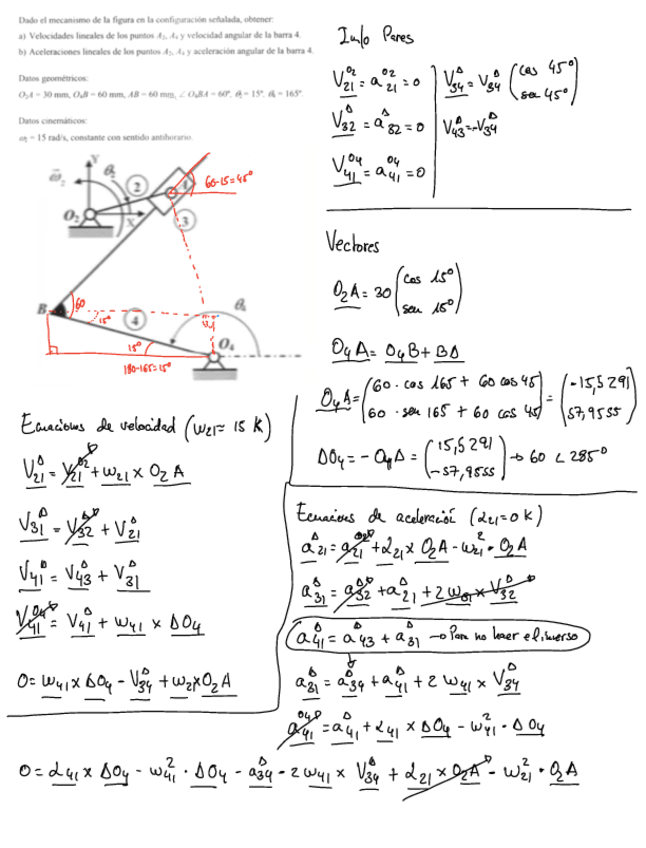 Dado el mecanismo de la figura en la configuración señalada, obtener:
a) Velocidades lineales de los puntos A₂, A₄ y velocidad angular de la barra 4.
b) Aceleraciones lineales de los puntos A₂, A₄ y aceleración angular de la barra 4.
Datos geométricos:
O₂A = 30 mm, O₄B = 60 mm, AB = 60 mm, ∠ O₄BA = 60º, θ₂ = 15º, θ₄ = 165º.
Datos cinemáticos:
ω₂ = 15 rad/s, constante con sentido antihorario.
Y
θ₂
ω₂
2
A
60-15=45º
O₂
X
3
B
60
15º
4
θ₄
15º
O₄
180-165=15º
Info Pares
V₂₁^O2 = a₂₁^O2 = 0
V₃₂^A = a₃₂^A = 0
V₄₁^O4 = a₄₁^O4 = 0
V₃₄^A = V₃₄^A (cos 45º
sen 45º)
V₄₃^A = -V₃₄^A
Vectores
O₂A = 30 (cos 15º
sen 15º)
O₄A = O₄B + BA
O₄A = (60 · cos 165 + 60 cos 45
60 · sen 165 + 60 cos 45) = (-15,5291
57,9555)
AO₄ = - O₄A = (15,5291
-57,9555) → 60 ∠ 285º
Ecuaciones de velocidad (ω₂₁ = 15 K)
V₂₁^A = V₂₁^O2 + ω₂₁ x O₂A
V₃₁^A = V₃₂^A + V₂₁^A
V₄₁^A = V₄₃^A + V₃₁^A
V₄₁^O4 = V₄₁^A + ω₄₁ x AO₄
0 = ω₄₁ x AO₄ - V₃₄^A + ω₂₁ x O₂A
Ecuaciones de aceleración (α₂₁ = 0 K)
a₂₁^A = a₂₁^O2 + α₂₁ x O₂A - ω₂₁² · O₂A
a₃₁^A = a₃₂^A + a₂₁^A + 2 ω₂₁ x V₃₂^A
a₄₁^A = a₄₃^A + a₃₁^A → Para no hacer el inverso
a₃₁^A = a₃₄^A + a₄₁^A + 2 ω₄₁ x V₃₄^A
a₄₁^O4 = a₄₁^A + α₄₁ x AO₄ - ω₄₁² · AO₄
0 = α₄₁ x AO₄ - ω₄₁² · AO₄ - a₃₄^A - 2 ω₄₁ x V₃₄^A + α₂₁ x O₂A - ω₂₁² · O₂A